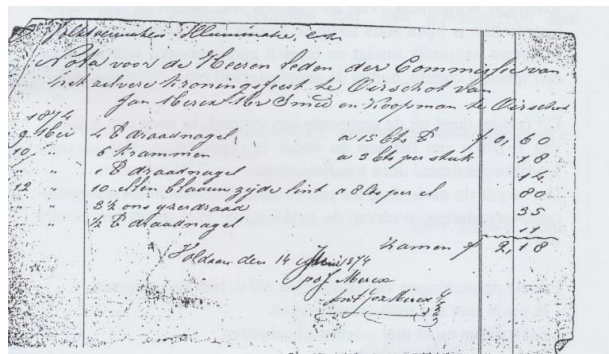 Volksvermaken Illuminatie enz
Nota voor de Heeren leden der Commissie van
het zilvere Kroningsfeest te Oirschot van
Jan Merex Mr Smid en Koopman te Oirschot
1874
9 Mei 4 ℔ draadnagel a 15 cts ℔ f 0, 60
10 " 6 krammen a 3 cts per stuk 18
" 1 ℔ draadnagel 14
12 " 10 ellen blaauw zijde lint a 8 cts per el 80
" 3½ ons yzerdraad 35
" ½ ℔ draadnagel 11
zamen f 2, 18
Voldaan den 14 Junij 1874
Merex